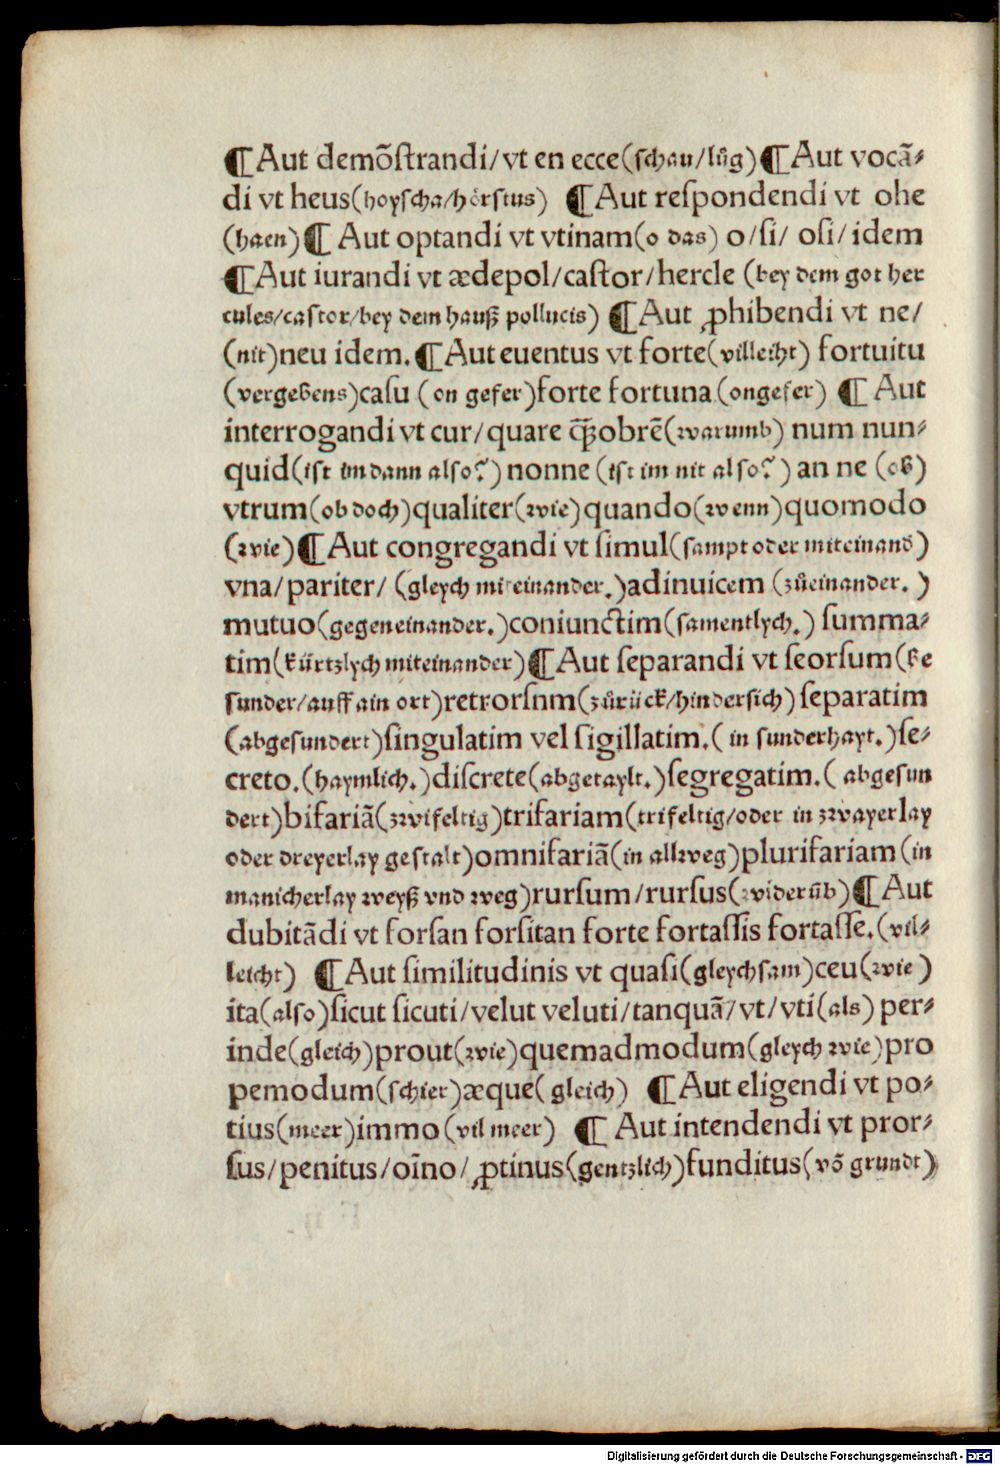 ¶Aut demõſtrandi/vt en ecce(schau/lůg)¶Aut vocã⸗
di vt heus(hoyscha/hörstus) ¶Aut reſpondendi vt ohe
(haen)¶ Aut optandi vt vtinam(o das) o/ſi/ oſi/idem
¶Aut iurandi vt ædepol/caſtor/hercle (bey dem got her
cules/castor/bey dem hauß pollucis) ¶Aut ꝓhibendi vt ne/
(nit)neu idem.¶Aut euentus vt forte(villeiht) fortuitu
(vergebens)caſu (on gefer)forte fortuna(ongefer) ¶ Aut
interrogandi vt cur/quare q̃ꝓobrẽ(warumb) num nun⸗
quid(ist im dann also?)nonne(ist im nit also?)an ne (ob)
vtrum(ob doch)qualiter(wie)quando(wenn)quomodo
(wie)¶Aut congregandi vt ſimul(sampt oder miteinand)
vna/pariter/ (gleych miteinander.)adinuicem (zůeinander. )
mutuo(gegeneinander.)coniunctim(samentlych.) ſumma⸗
tim(kürtzlych miteinander)¶Aut ſeparandi vt ſeorſum(be
sunder/auff ain ort)retrorſnm(zůrück/hindersich)ſeparatim
(abgesundert)ſingulatim vel ſigillatim.( in sunderhayt.)ſe⸗
creto.(haymlich.)diſcrete(abgetaylt.)ſegregatim.( abgesun
dert)bifariã(zwifeltig)trifariam(trifeltig/oder in zwayerlay
oder dreyerlay gestalt)omnifariã(in allweg)plurifariam(in
manicherlay weyß vnd weg)rurſum/rurſus(widerũb)¶Aut
dubitãdi vt forſan forſitan forte fortaſſis fortaſſe.(vil⸗
leicht) ¶Aut ſimilitudinis vt quaſi(gleychsam)ceu(wie )
ita(also)ſicut ſicuti/velut veluti/tanquã/vt/vti(als) per⸗
inde(gleich)prout(wie)quemadmodum(gleych wie)pro
pemodum(schier)æque( gleich) ¶Aut eligendi vt po⸗
tius(meer)immo(vil meer) ¶ Aut intendendi vt pror⸗
ſus/penitus/oĩno/ꝓtinus(gentzlich)funditus(võ grundt)
Digitalisierung gefördert durch die Deutsche Forschungsgemeinschaft - DFG